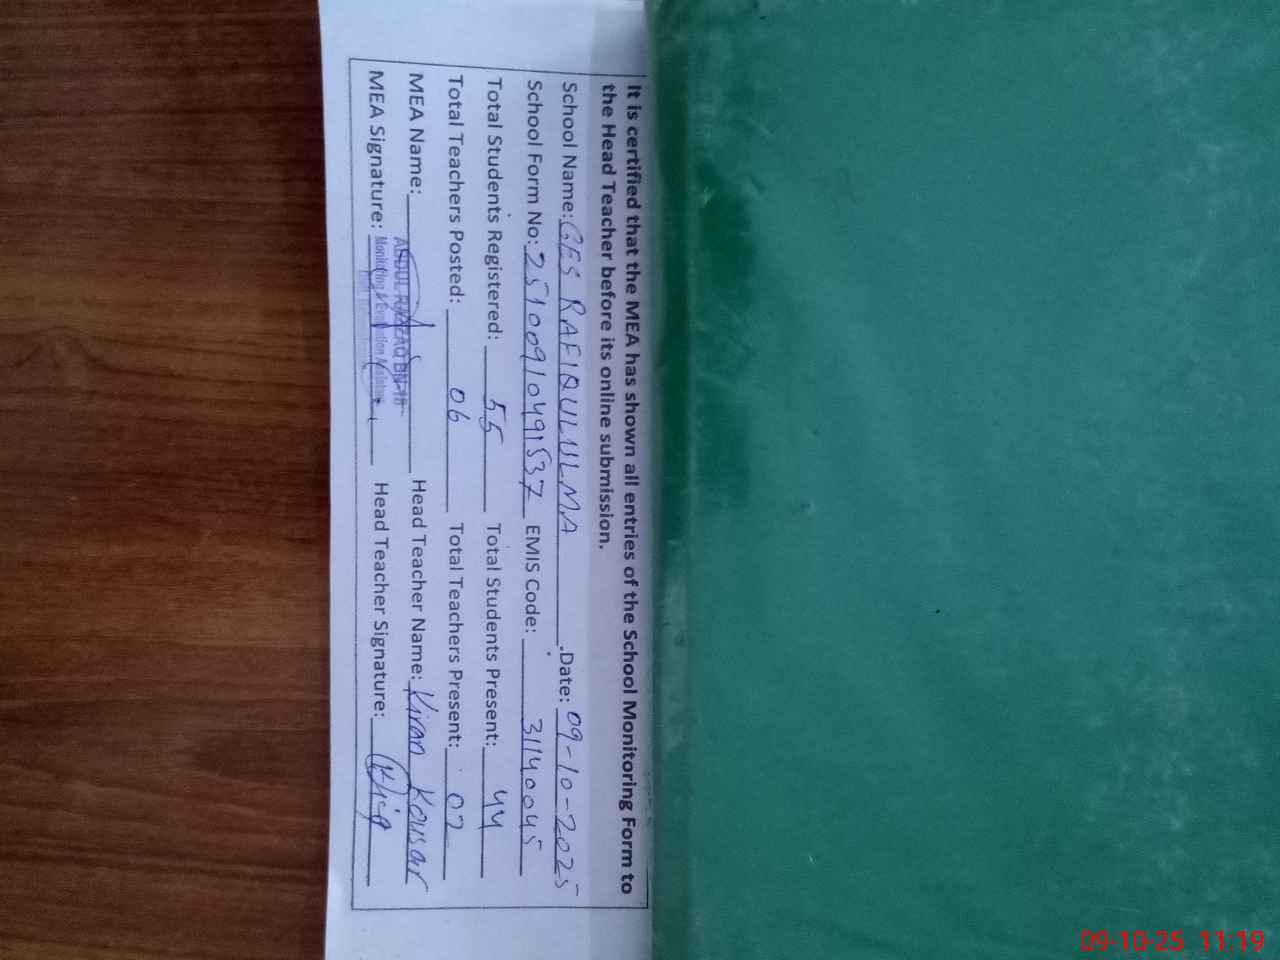 It is certified that the MEA has shown all entries of the School Monitoring Form to
the Head Teacher before its online submission.
School Name: GES RAFIQULULMA Date: 09-10-2025
School Form No: 25100910491537 EMIS Code: 31140045
Total Students Registered: 55 Total Students Present: 44
Total Teachers Posted: 06 Total Teachers Present: 02
MEA Name: ABDUL RAZZAQ BN-18 Head Teacher Name: Kiran Kousar
MEA Signature: Monitoring & Evaluation Assistant Head Teacher Signature:
09-10-25 11:19